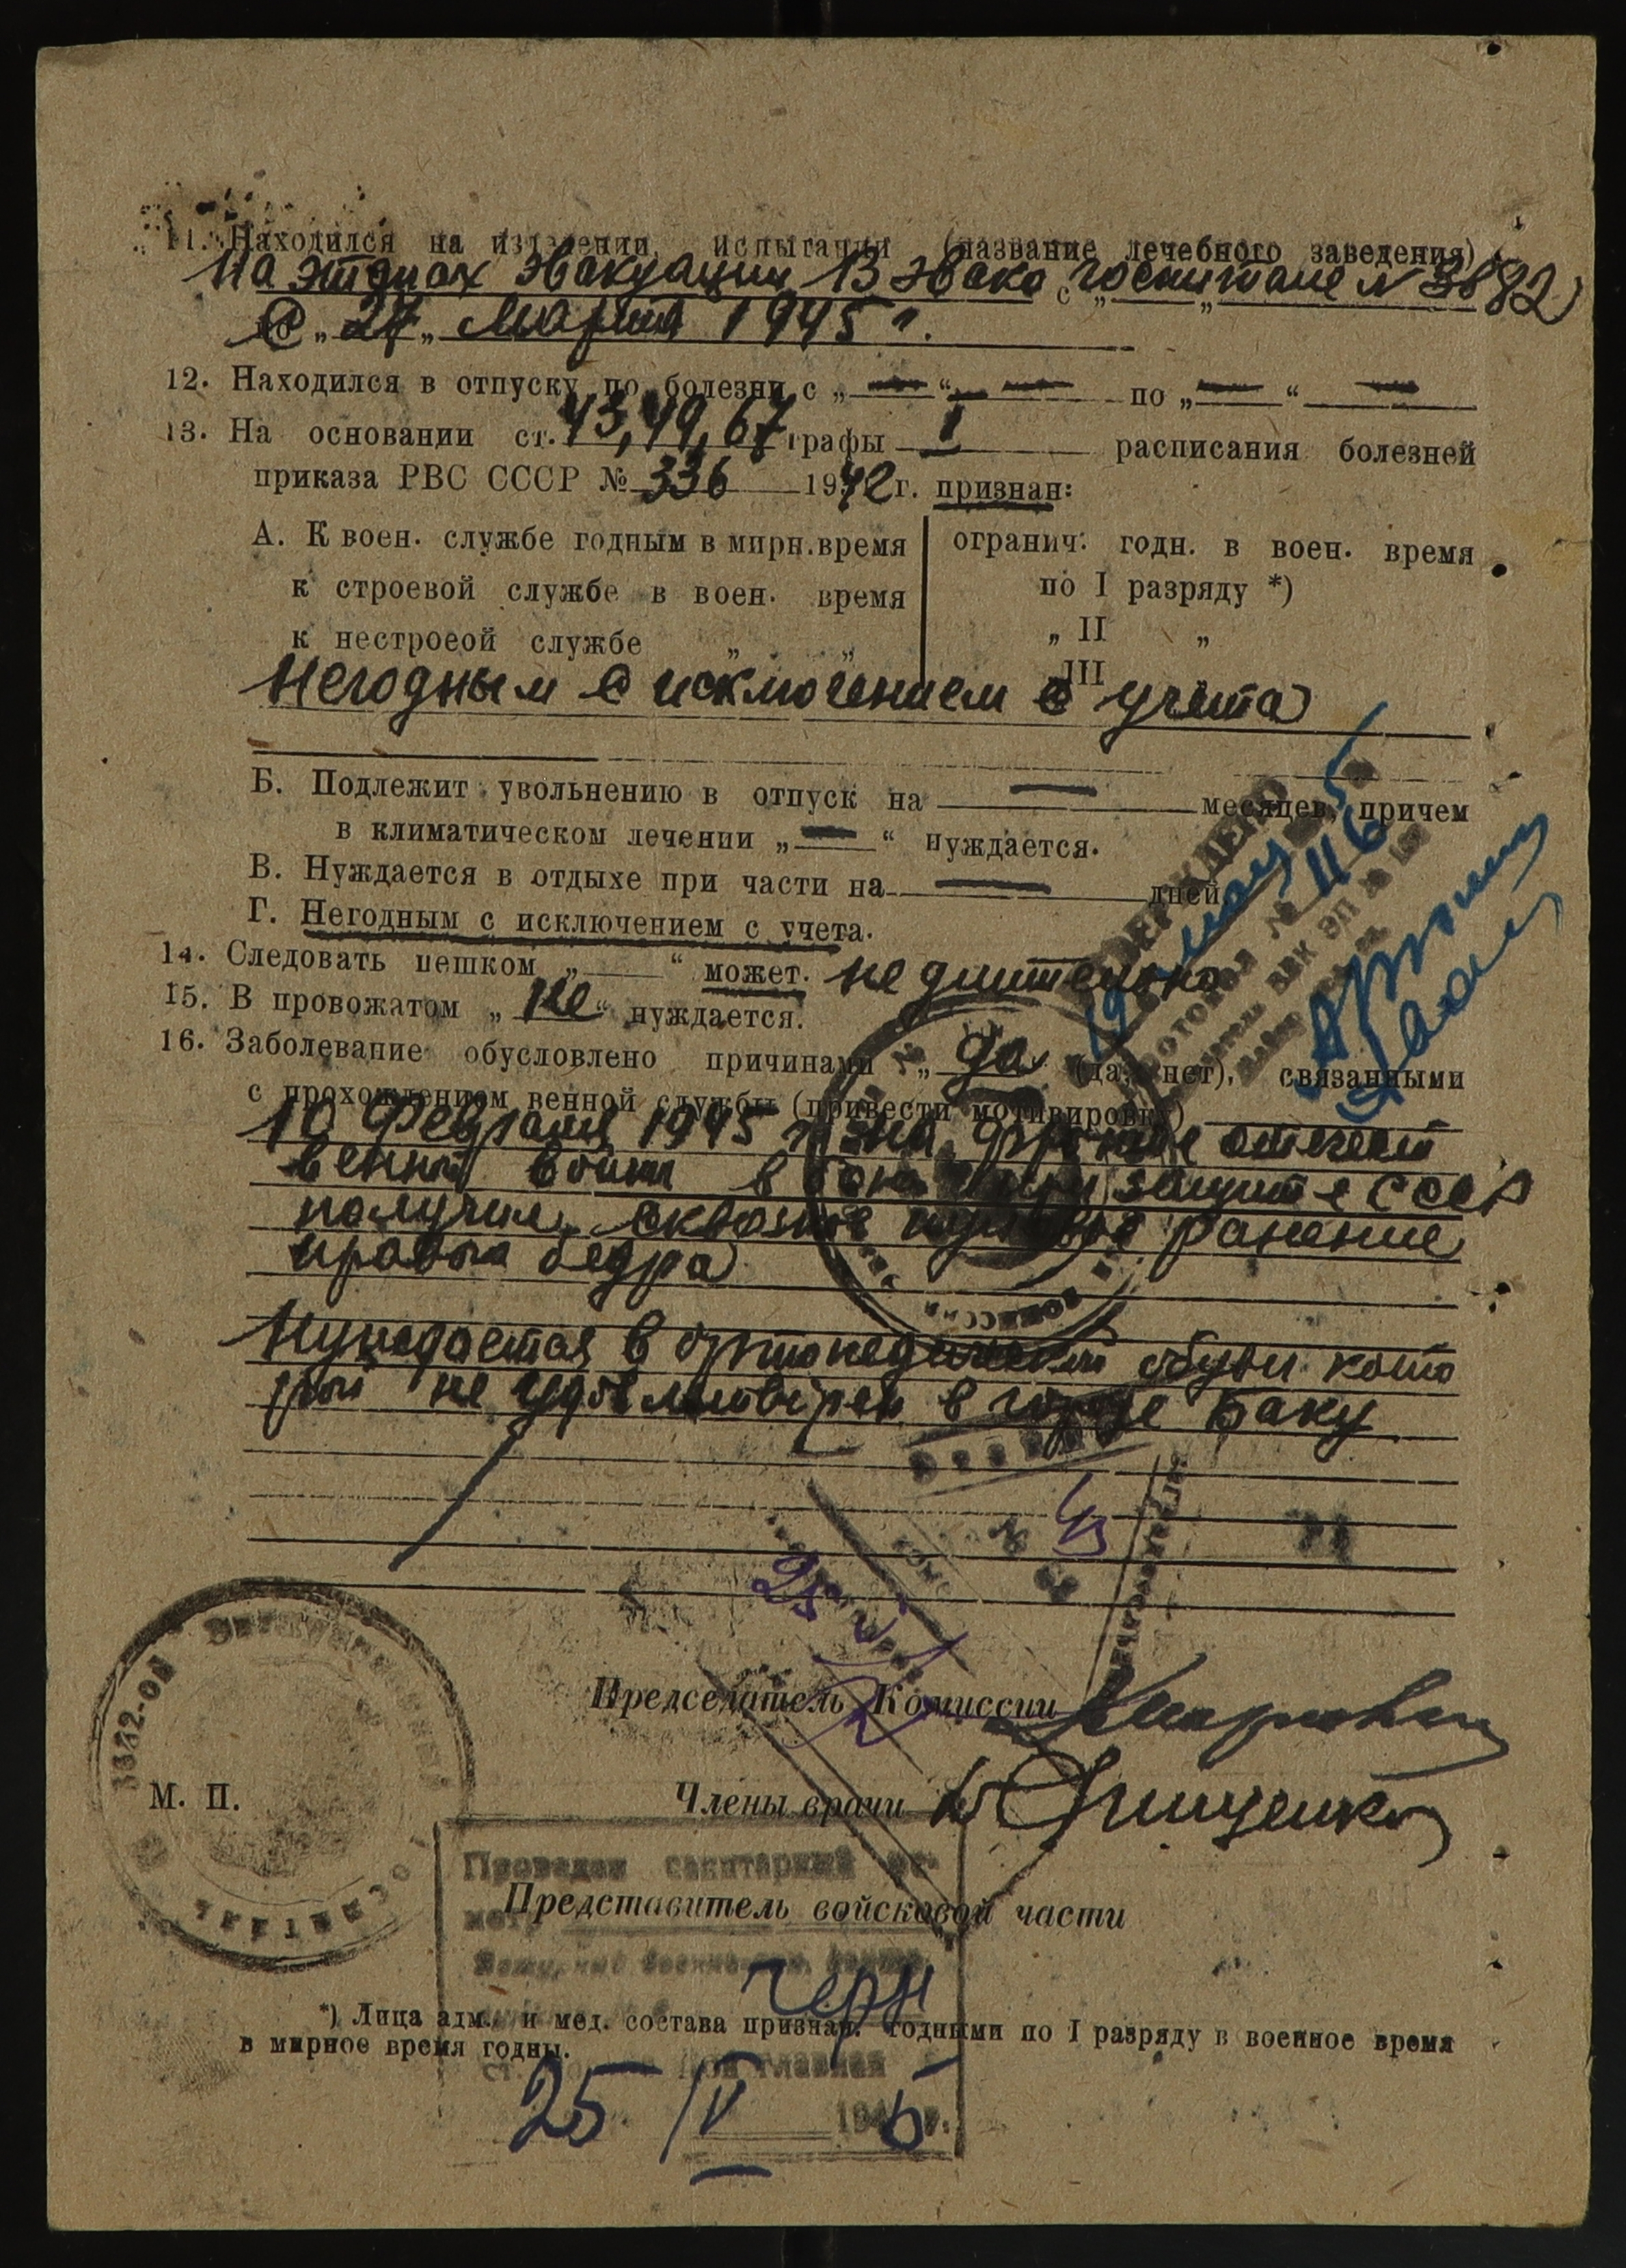 11. Находился на излечении, испытании (название лечебного заведения)
На этапах эвакуации, В эвако госпитале № 3882
с „ „
С „27„ Марта 1945 г.
12. Находился в отпуску по болезни с „ — “ — по „ — “ —
13. На основании ст. 43, 49, 67 графы I расписания болезней
приказа РВС СССР № 336 1942 г. признан:
А. К воен. службе годным в мирн. время
к строевой службе в воен. время
к нестроеой службе „ „
огранич. годн. в воен. время
по I разряду *)
„ II „
III
Негодным с исключением с учета
Б. Подлежит увольнению в отпуск на — месяцев, причем
в климатическом лечении „ — “ нуждается.
В. Нуждается в отдыхе при части на — дней
Г. Негодным с исключением с учета.
14. Следовать пешком „ — “ может. не длительно
15. В провожатом „ не “ нуждается.
16. Заболевание обусловлено причинами „ да “ (да, нет), связанными
с прохождением венной службы (привести мотивировку)
10 Февраля 1945 г. на фронте отечест
венной войны в бою при защите СССР
получил сквозное пулевое ранение
правого бедра
Нуждается в ортопедической обуви кото
рой не удовлетворен в городе Баку
УТВЕРЖДЕНО
19 мая 5
ПРОТОКОЛ № 116
Председатель Комиссии
М. П.
Члены врачи
Грищенко
Проведен санитарный ос-
мотр
Представитель войсковой части
черн
*) Лица адм. и мед. состава признан. годными по I разряду в военное время
в мирное время годны.
главная
25 IV 1945 г.
3882-ОЙ
ГОСПИТАЛЬ
КОМИССИЯ